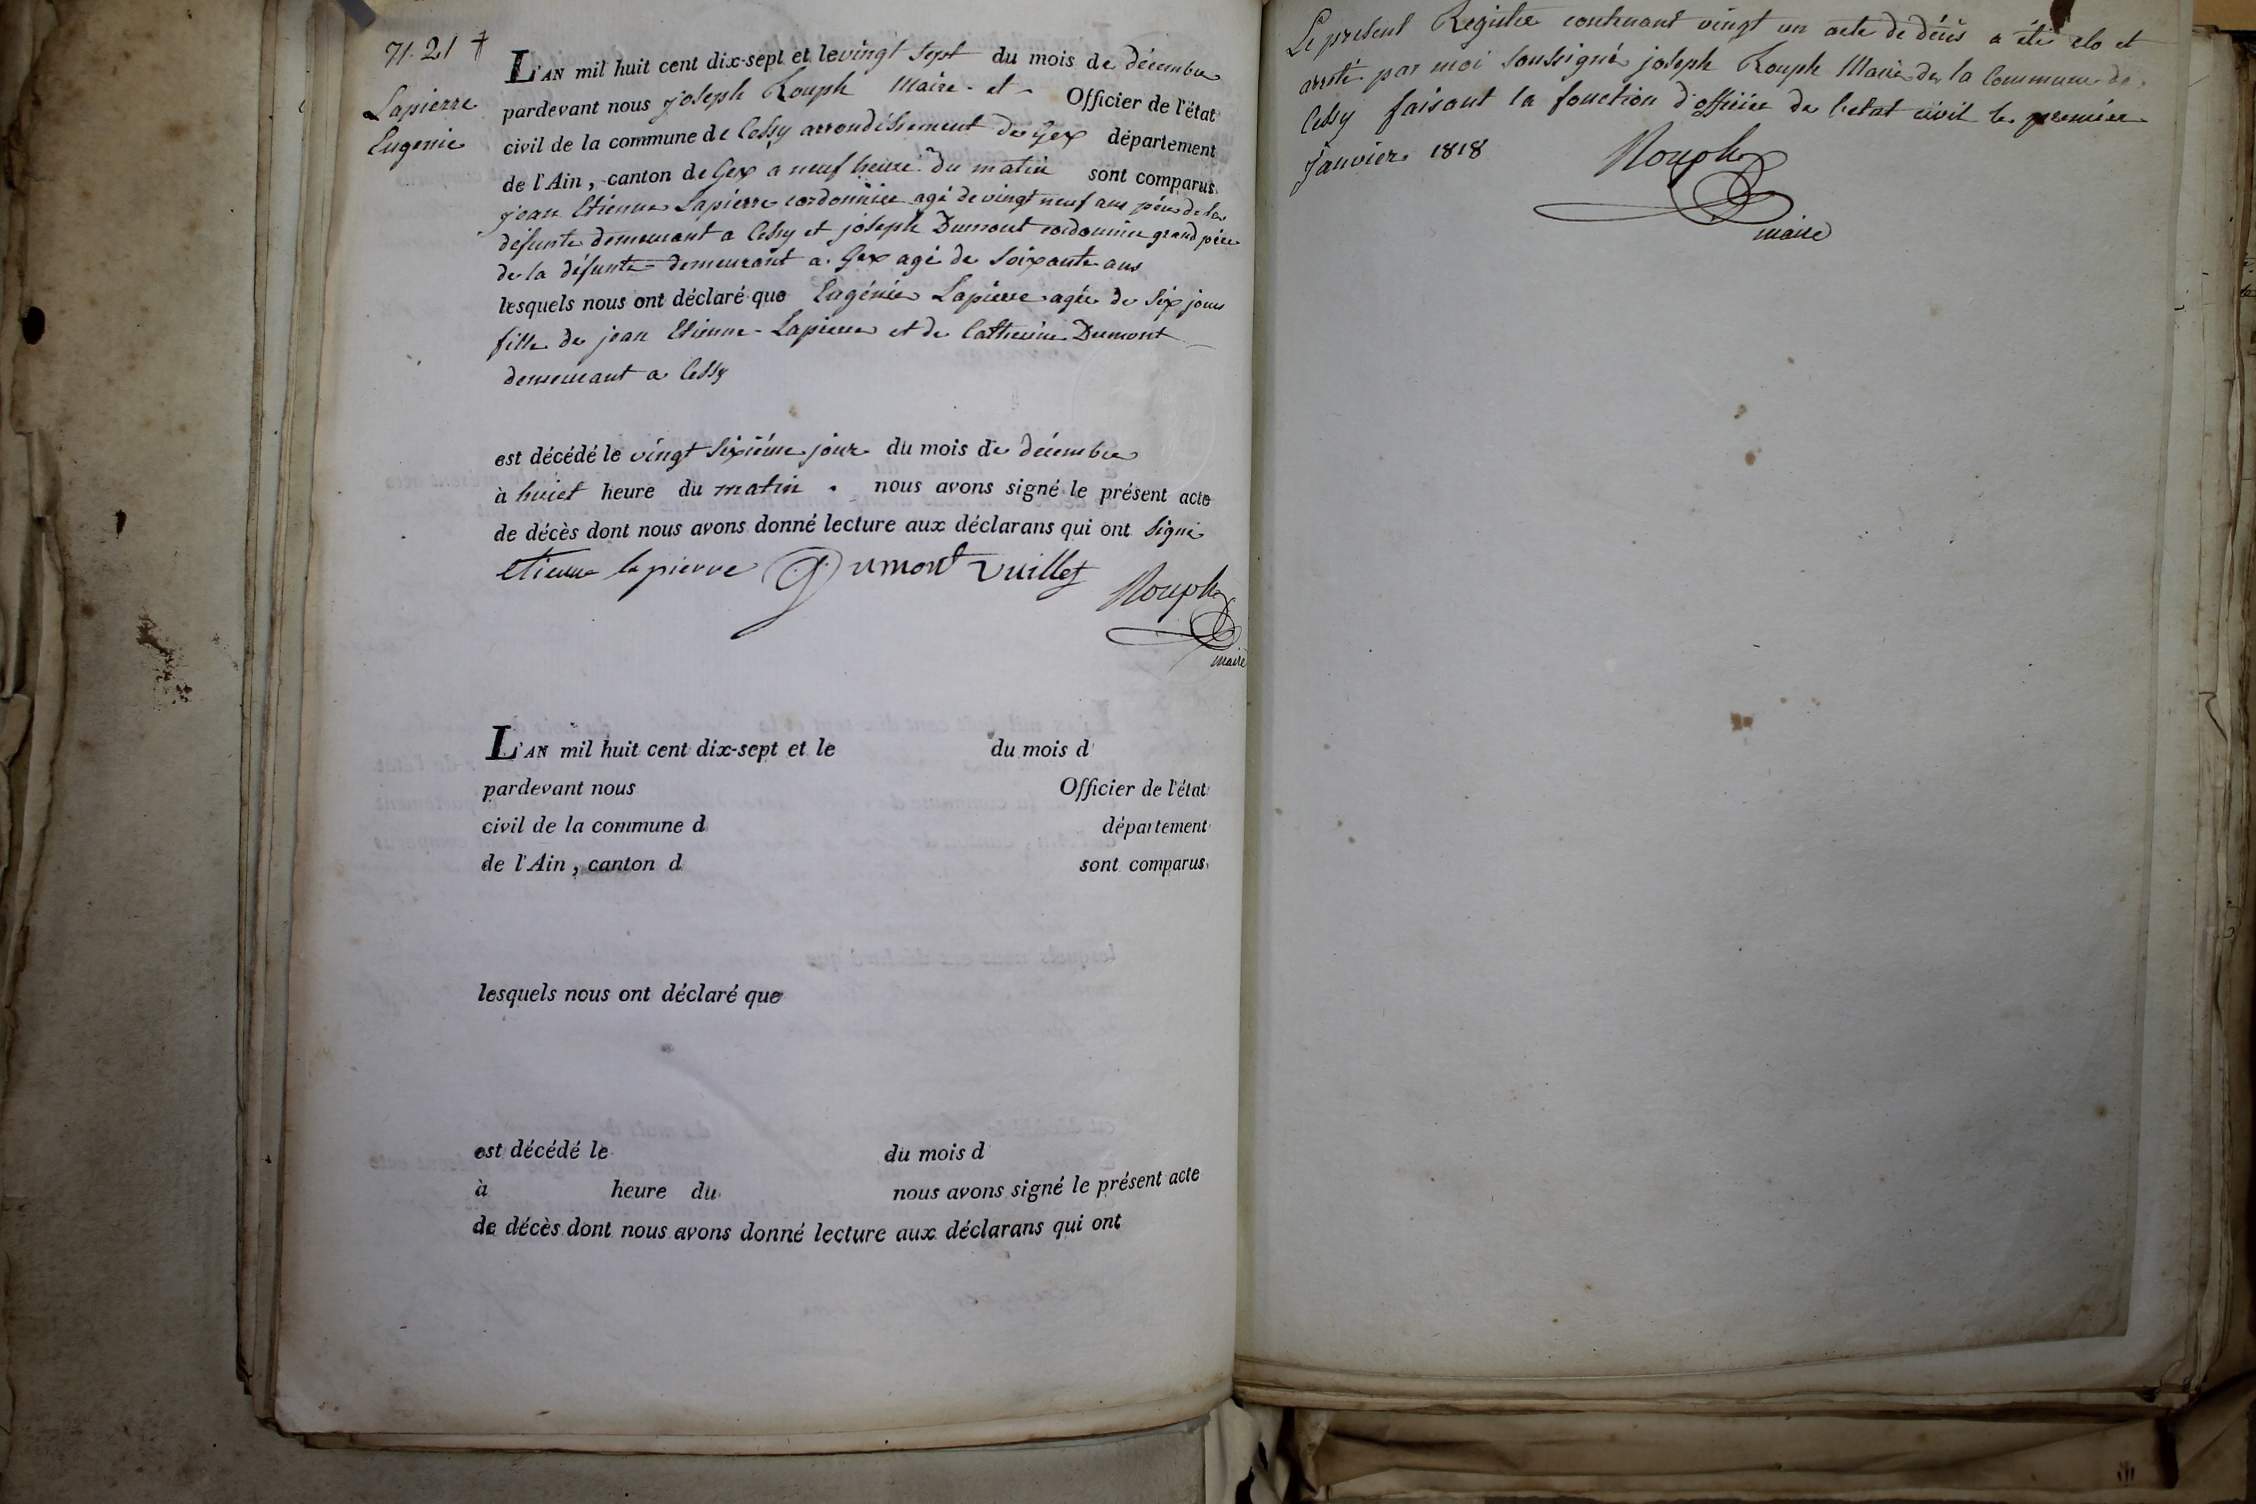 71. 21 †
Lapierre
Eugenie
L'AN mil huit cent dix-sept et le vingt sept du mois de décembre
pardevant nous joseph Rouph Maire et Officier de l'état
civil de la commune de Cessy arrondissement de Gex département
de l'Ain, canton de Gex a neuf heure du matin sont comparus
jean Etienne Lapierre cordonnier agé de vingt neuf ans père de la
défunte demeurant a Cessy et joseph Dumont cordonnier grand père
de la défunte demeurant a Gex agé de soixante ans
lesquels nous ont déclaré que Eugénie Lapierre agée de six jours
fille de jean Etienne Lapierre et de Catherine Dumont
demeurant a Cessy
est décédé le vingt sixième jour du mois de décembre
à huict heure du matin . nous avons signé le présent acte
de décès dont nous avons donné lecture aux déclarans qui ont signé
etienne lapierre Dumont vuillet Rouph
maire
L'AN mil huit cent dix-sept et le du mois d
pardevant nous Officier de l'état
civil de la commune d département
de l'Ain, canton d sont comparus
lesquels nous ont déclaré que
est décédé le du mois d
à heure du nous avons signé le présent acte
de décès dont nous avons donné lecture aux déclarans qui ont
Le présent Registre contenant vingt un acte de décès a été clo et
arreté par moi soussigné joseph Rouph Maire de la Commune de
Cessy faisant la fonction d'officier de l'etat civil le premier
Janvier 1818
Rouph
maire